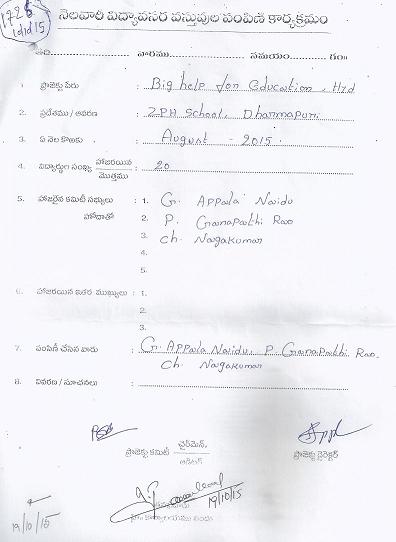 1726
1/10/15
నెలవారీ విద్యావసర వస్తువుల పంపిణీ కార్యక్రమం
తేది.................. వారము.................. సమయం.................. గం॥
1. ప్రాజెక్టు పేరు : Big help for Education, Hyd
2. ప్రదేశము / ఆవరణ : ZPH School, Dharmapuri
3. ఏ నెల కొఱకు : August - 2015.
4. విద్యార్థుల సంఖ్య హాజరయిన / మొత్తము : 20
5. హాజరైన కమిటీ సభ్యులు : 1. G. Appala Naidu
హోదాతో 2. P. Ganapathi Rao
3. Ch. Nagakumar
4.
5.
6. హాజరయిన ఇతర ముఖ్యులు : 1.
2.
3.
7. పంపిణీ చేసిన వారు : G. Appala Naidu, P. Ganapathi Rao,
Ch. Nagakumar
8. వివరణ / సూచనలు :
ప్రాజెక్టు కమిటీ ఛైర్మెన్, / ఆడిటర్
ప్రాజెక్టు డైరెక్టర్
19/10/15
19/10/15